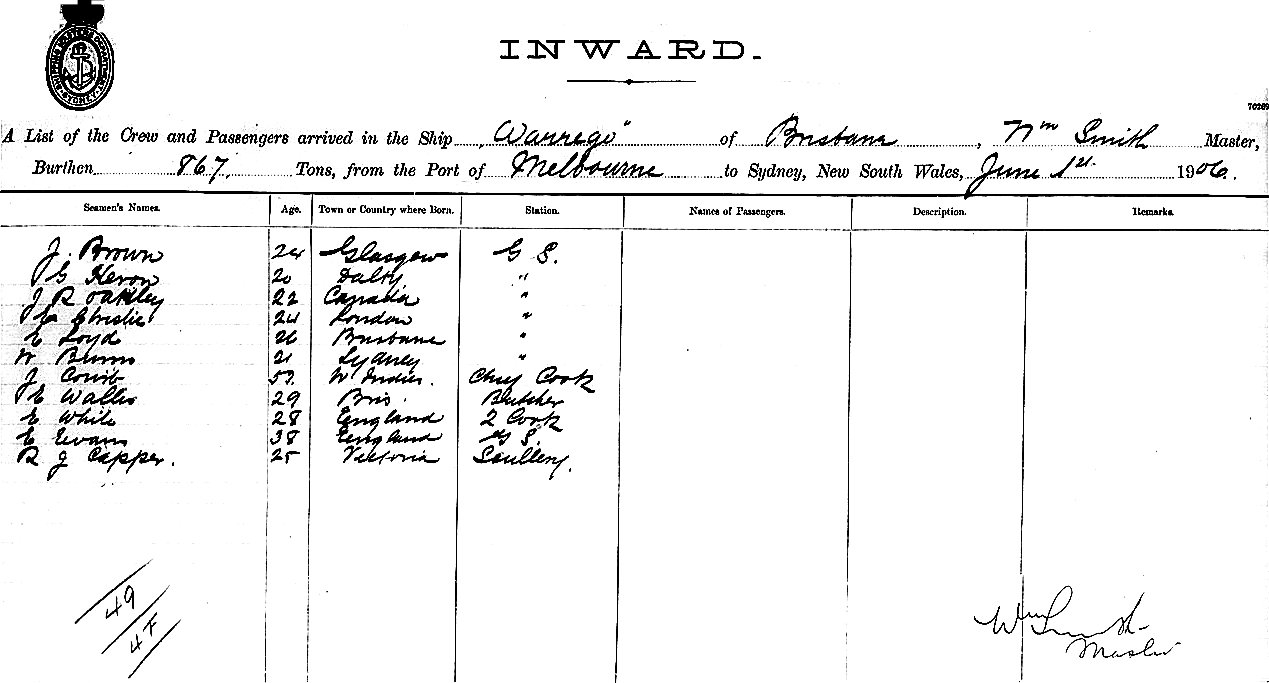 SHIPPING MASTERS DEPARTMENT SYDNEY
INWARD.
70269
A List of the Crew and Passengers arrived in the Ship "Warrego" of Brisbane, Wm Smith Master,
Burthen 867 Tons, from the Port of Melbourne to Sydney, New South Wales, June 1st 1906.
Seamen's Names. Age. Town or Country where Born. Station. Names of Passengers. Description. Remarks.
J. Brown 24 Glasgow G S.
G Heron 20 Dalty "
J R Oakley 22 Canada "
E Christie 24 London "
E Loyd 26 Brisbane "
W Burns 21 Sydney "
J 57 W Indies. Chief Cook
E Wallis 29 Bris. Butcher
E White 28 England 2 Cook
E Evans 38 England G S.
R J Capper. 25 Victoria Scullery.
49
47
Wm Smith
Master